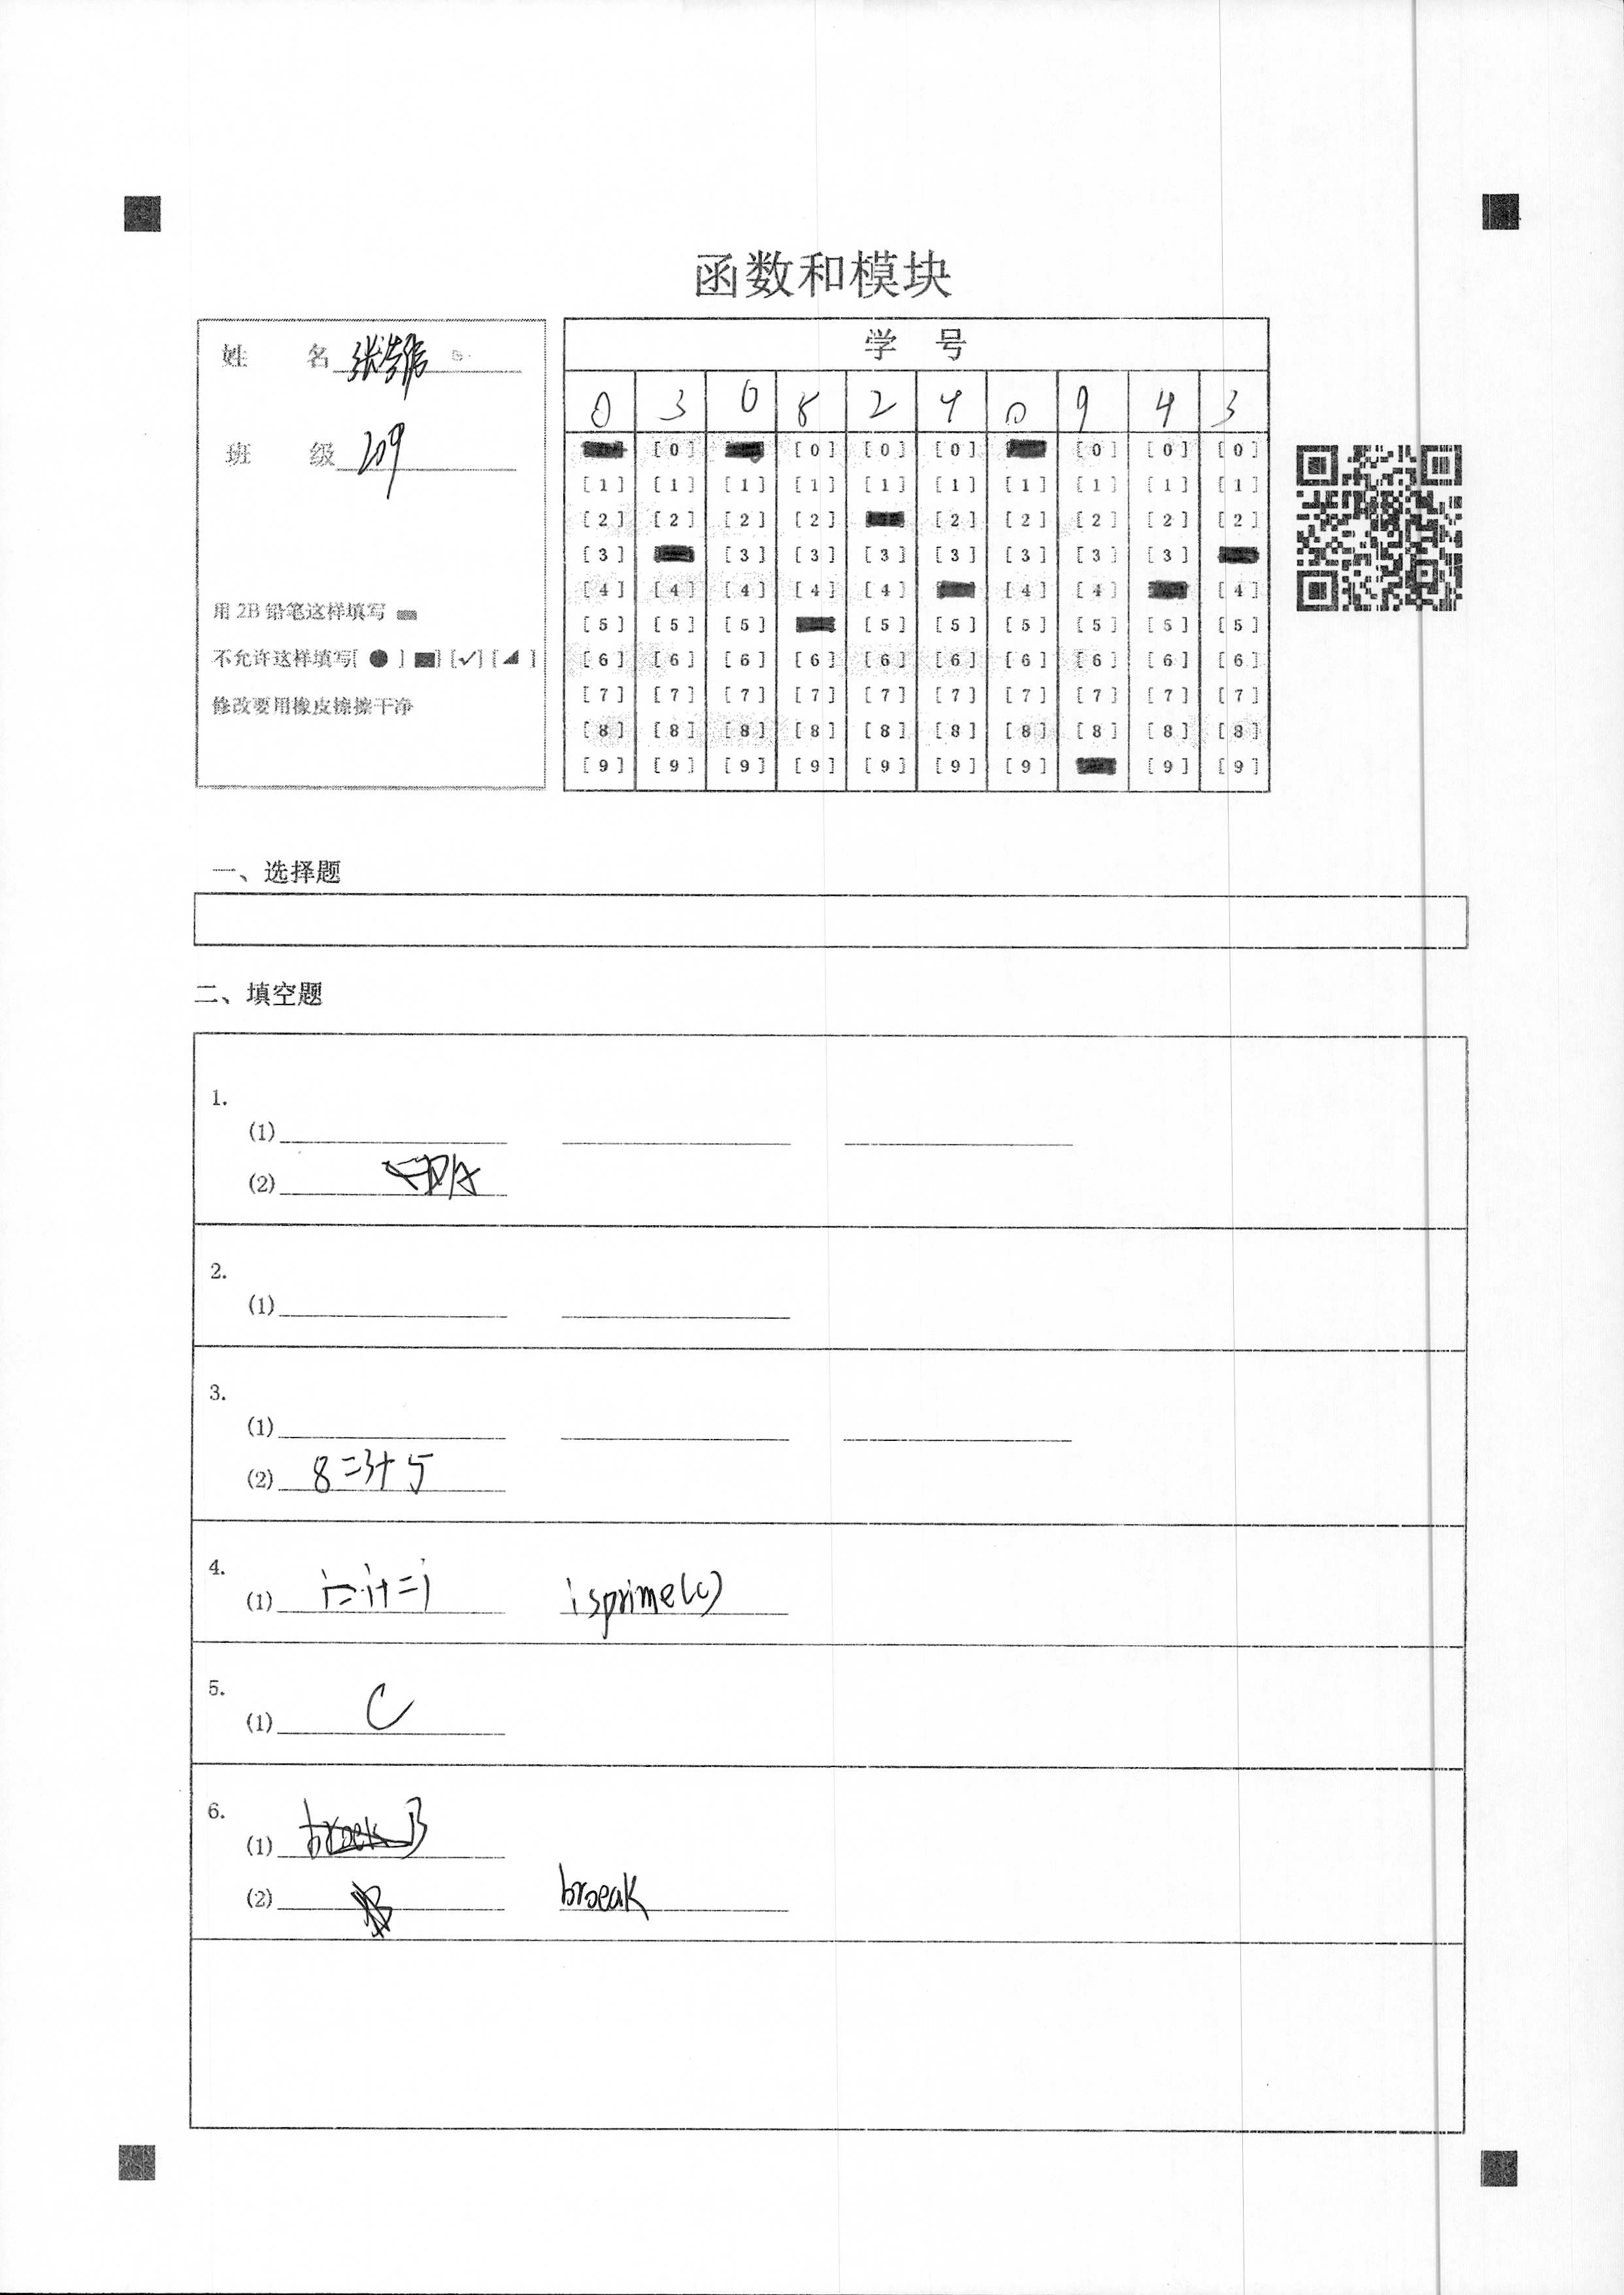 函数和模块
姓 名 张
班 级 209
用 2B 铅笔这样填写
不允许这样填写[ ● ] [■] [✓] [◢ ]
修改要用橡皮擦擦干净
学 号
0 3 0 8 2 4 0 9 4 3
[0] [0] [0] [0] [0] [0] [0]
[1] [1] [1] [1] [1] [1] [1] [1] [1] [1]
[2] [2] [2] [2] [2] [2] [2] [2] [2]
[3] [3] [3] [3] [3] [3] [3] [3]
[4] [4] [4] [4] [4] [4] [4] [4]
[5] [5] [5] [5] [5] [5] [5] [5] [5]
[6] [6] [6] [6] [6] [6] [6] [6] [6] [6]
[7] [7] [7] [7] [7] [7] [7] [7] [7] [7]
[8] [8] [8] [8] [8] [8] [8] [8] [8] [8]
[9] [9] [9] [9] [9] [9] [9] [9] [9]
一、选择题
二、填空题
1.
(1)
(2)
2.
(1)
3.
(1)
(2) 8=3+5
4.
(1) i=i+=1 isprime(c)
5.
(1) C
6.
(1) B
(2) broeak